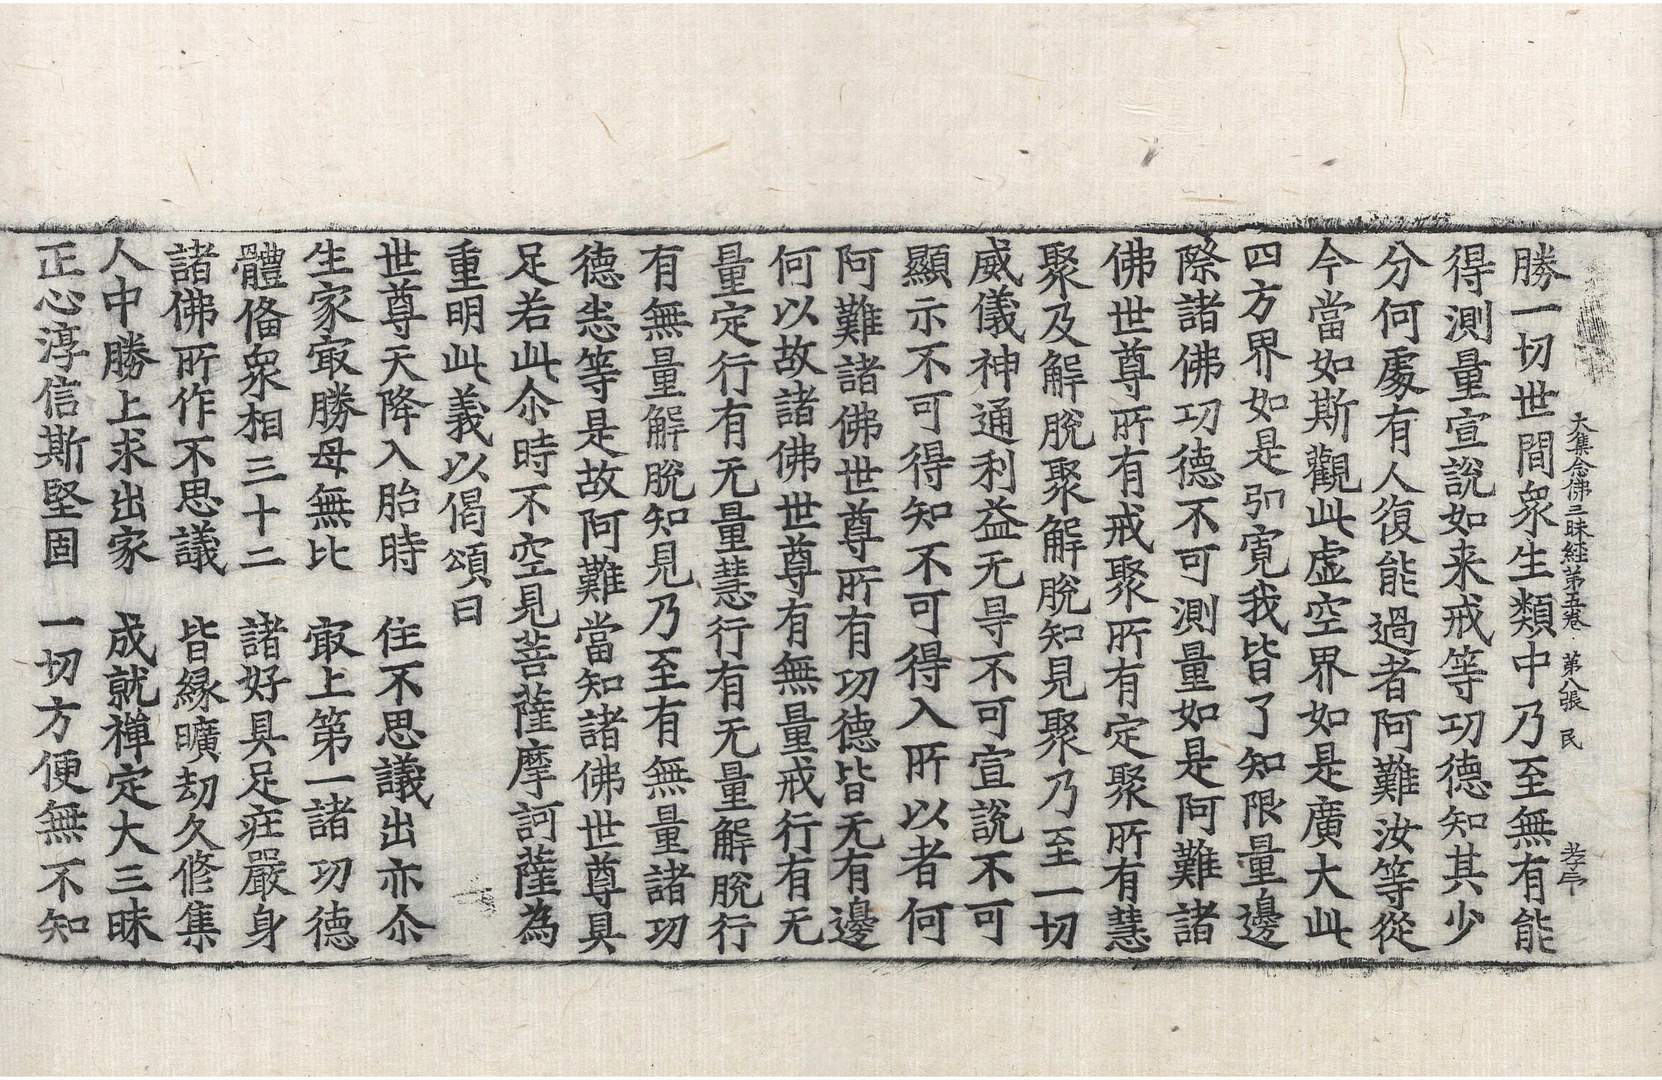 大集念佛三昧経苐五卷 苐八張 民 孝帀
勝一切世間衆生類中乃至無有能
得測量宣說如来戒等功德知其少
分何處有人復能過者阿難汝等從
今當如斯觀此虛空界如是廣大此
四方界如是㢧寬我皆了知限量邊
際諸佛功德不可測量如是阿難諸
佛世尊所有戒聚所有定聚所有慧
聚及解脫聚解脫知見聚乃至一切
威儀神通利益无㝵不可宣說不可
顯示不可得知不可得入所以者何
阿難諸佛世尊所有功德皆无有邊
何以故諸佛世尊有無量戒行有无
量定行有无量慧行有无量解脫行
有無量解脫知見乃至有無量諸功
德悉等是故阿難當知諸佛世尊具
足若此尒時不空見菩薩摩訶薩為
重明此義以偈頌曰
世尊天降入胎時 住不思議出亦尒
生家㝡勝母無比 㝡上第一諸功德
體俻衆相三十二 諸好具足㽵嚴身
諸佛所作不思議 皆縁曠劫久修集
人中勝上求出家 成就禅定大三昧
正心淳信斯堅固 一切方便無不知